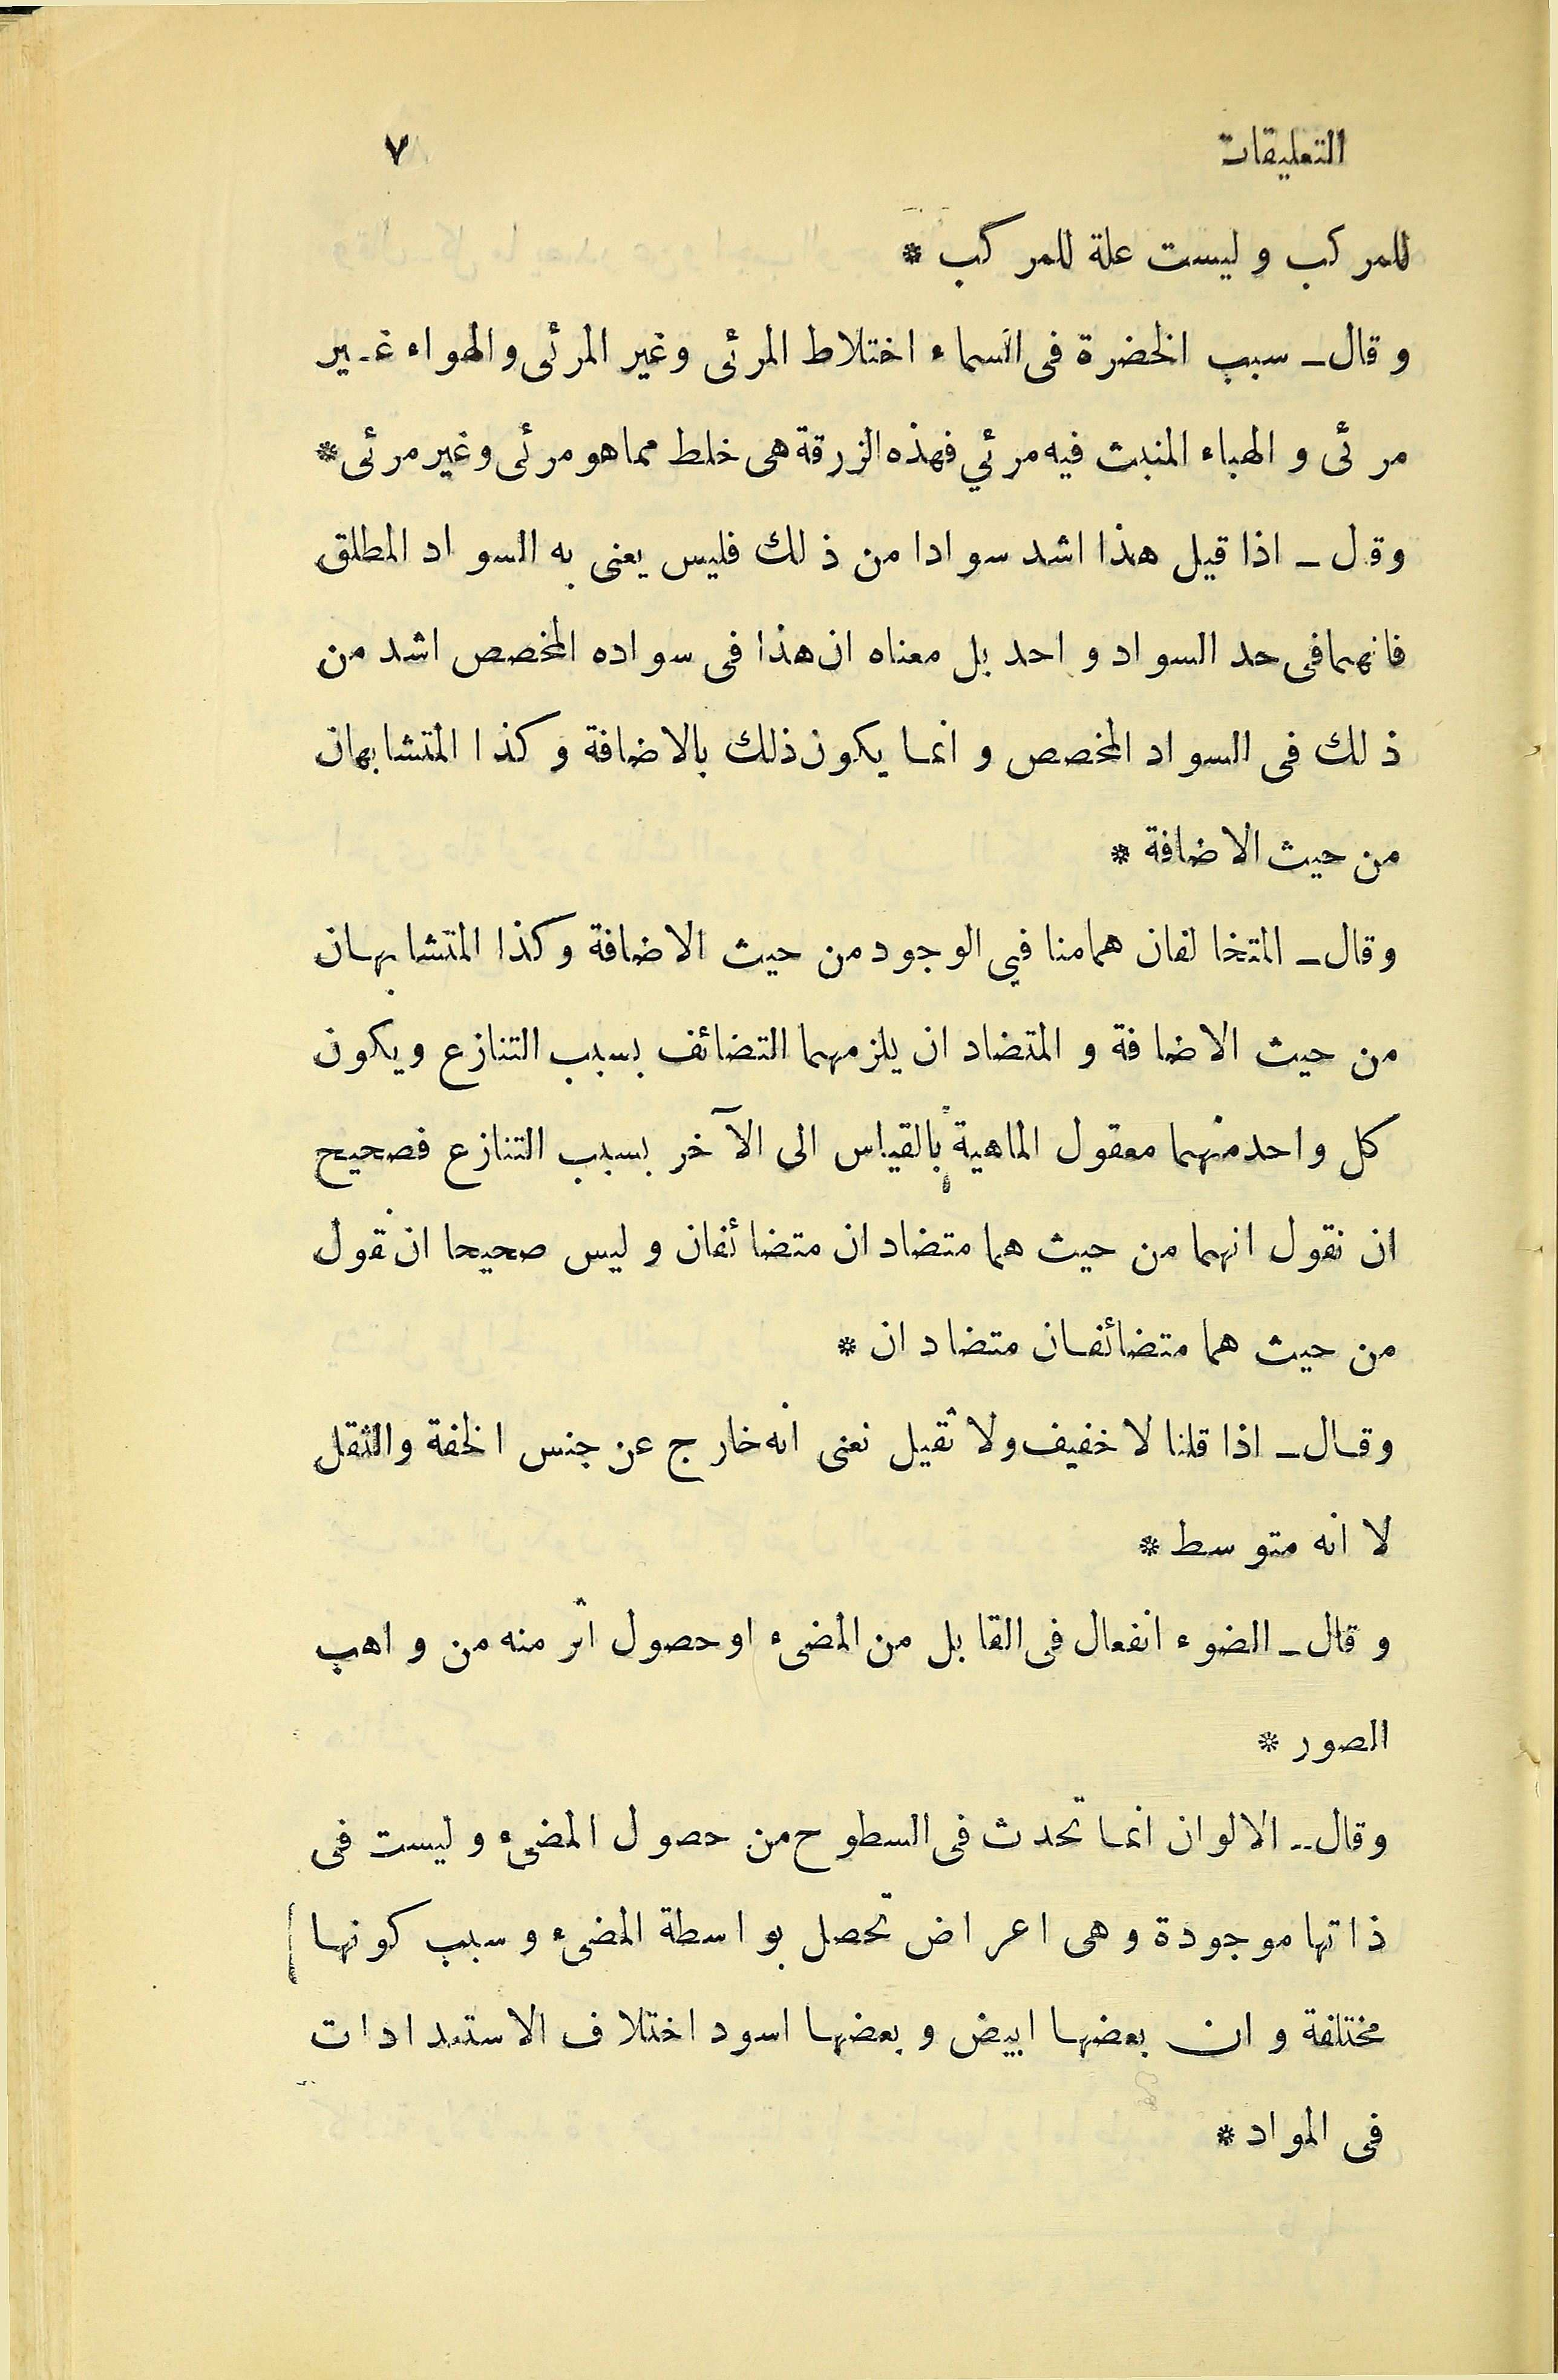 التعليقات ٧
للمركب وليست علة للمركب *
وقال ـ سبب الخضرة فى السماء اختلاط المرئى وغير المرئى والهواء غير
مرئى والهباء المنبث فيه مرئي فهذه الزرقة هى خلط مما هو مرئى وغير مرئى *
وقل ـ اذا قيل هذا اشد سوادا من ذلك فليس يعنى به السواد المطلق
فانهما فى حد السواد واحد بل معناه ان هذا فى سواده المخصص اشد من
ذلك فى السواد المخصص وانما يكون ذلك بالاضافة وكذا المتشابهان
من حيث الاضافة *
وقال ـ المتخالفان هما منا في الوجود من حيث الاضافة وكذا المتشابهان
من حيث الاضافة والمتضادان يلزمهما التضائف بسبب التنازع ويكون
كل واحد منهما معقول الماهية بالقياس الى الآخر بسبب التنازع فصحيح
ان نقول انهما من حيث هما متضادان متضائفان وليس صحيحا ان نقول
من حيث هما متضائفان متضادان *
وقال ـ اذا قلنا لا خفيف ولا ثقيل نعنى انه خارج عن جنس الخفة والثقل
لا انه متوسط *
وقال ـ الضوء انفعال فى القابل من المضىء او حصول اثر منه من واهب
الصور *
وقال ـ الالوان انما تحدث فى السطوح من حصول المضىء وليست فى
ذاتها موجودة وهى اعراض تحصل بواسطة المضىء وسبب كونها
مختلفة وان بعضها ابيض وبعضها اسود اختلاف الاستعدادات
فى المواد *